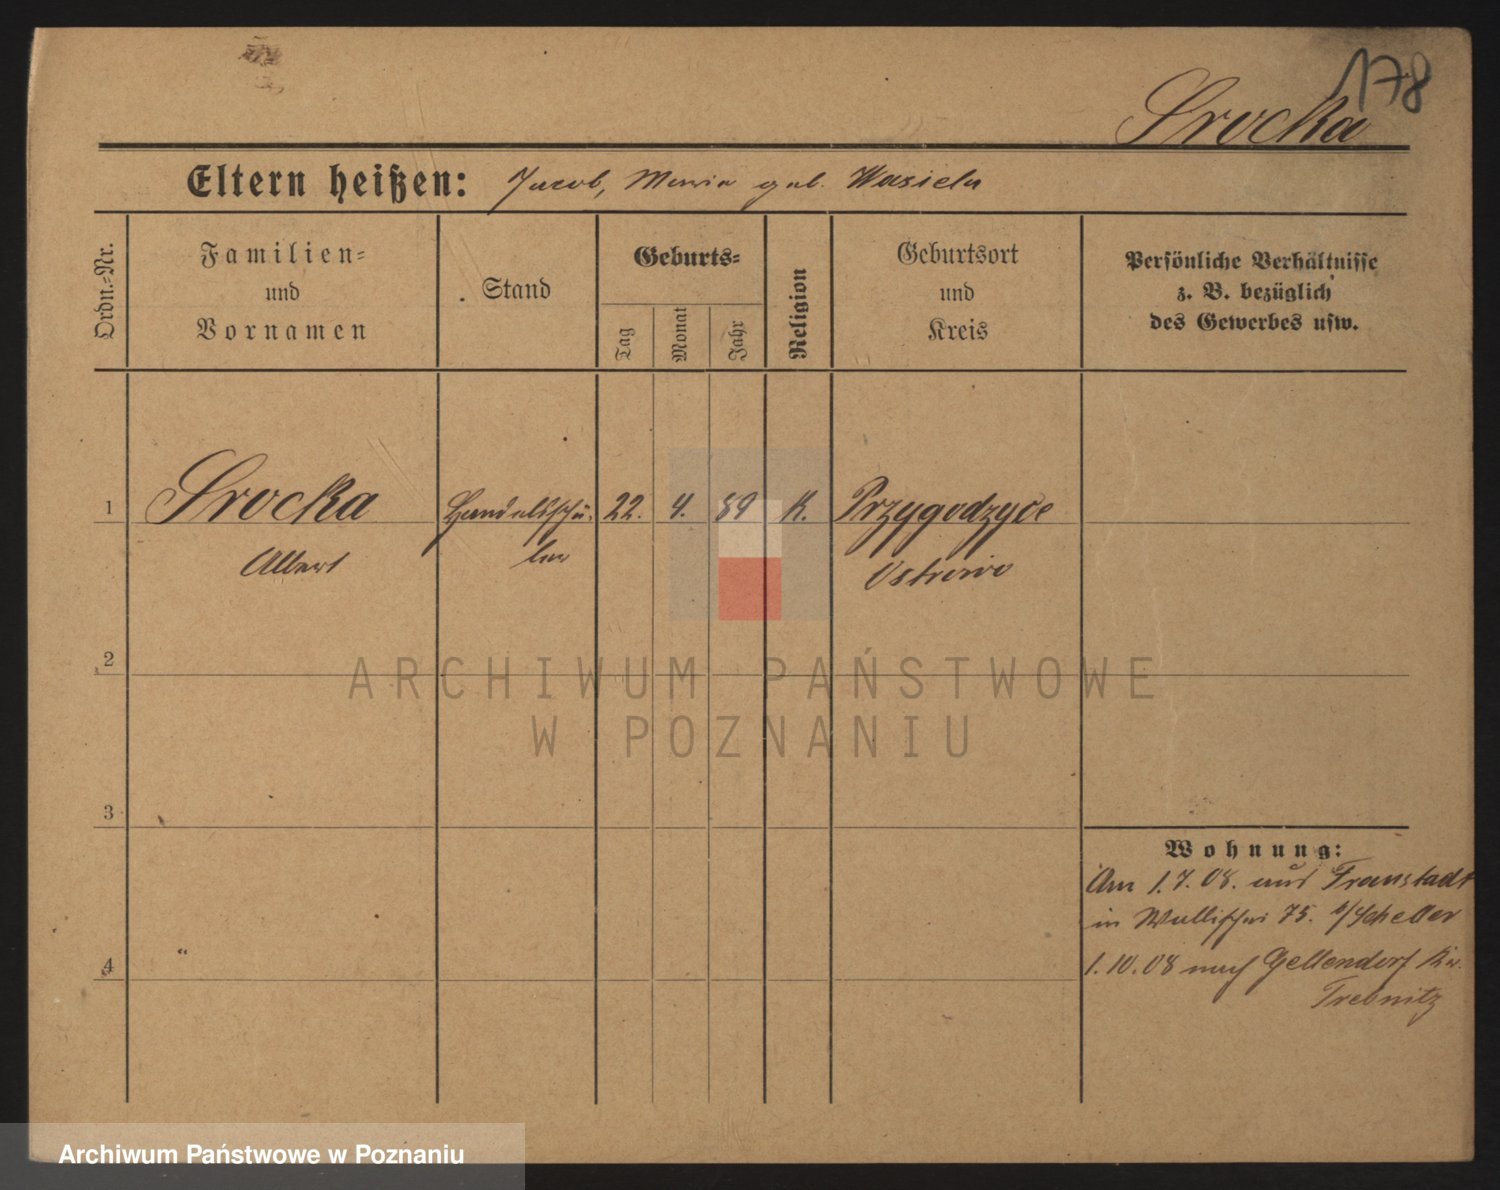 178
Srocka
Eltern heißen: Jacob, Maria geb. Wasiela
Ordn.-Nr.
Familien-
und
Vornamen
Stand
Geburts-
Tag
Monat
Jahr
Religion
Geburtsort
und
Kreis
Persönliche Verhältnisse
z. B. bezüglich
des Gewerbes usw.
1 Srocka Handelsschü- 22. 4. 89 K. Przygodzyce
Albert ler Ostrowo
2
3
4
Wohnung:
Am 1.7.08. aus Fraustadt
in Wallischei 75. b/Scheller
1.10.08 nach Gellendorf Kr.
Trebnitz
ARCHIWUM PAŃSTWOWE
W POZNANIU
Archiwum Państwowe w Poznaniu